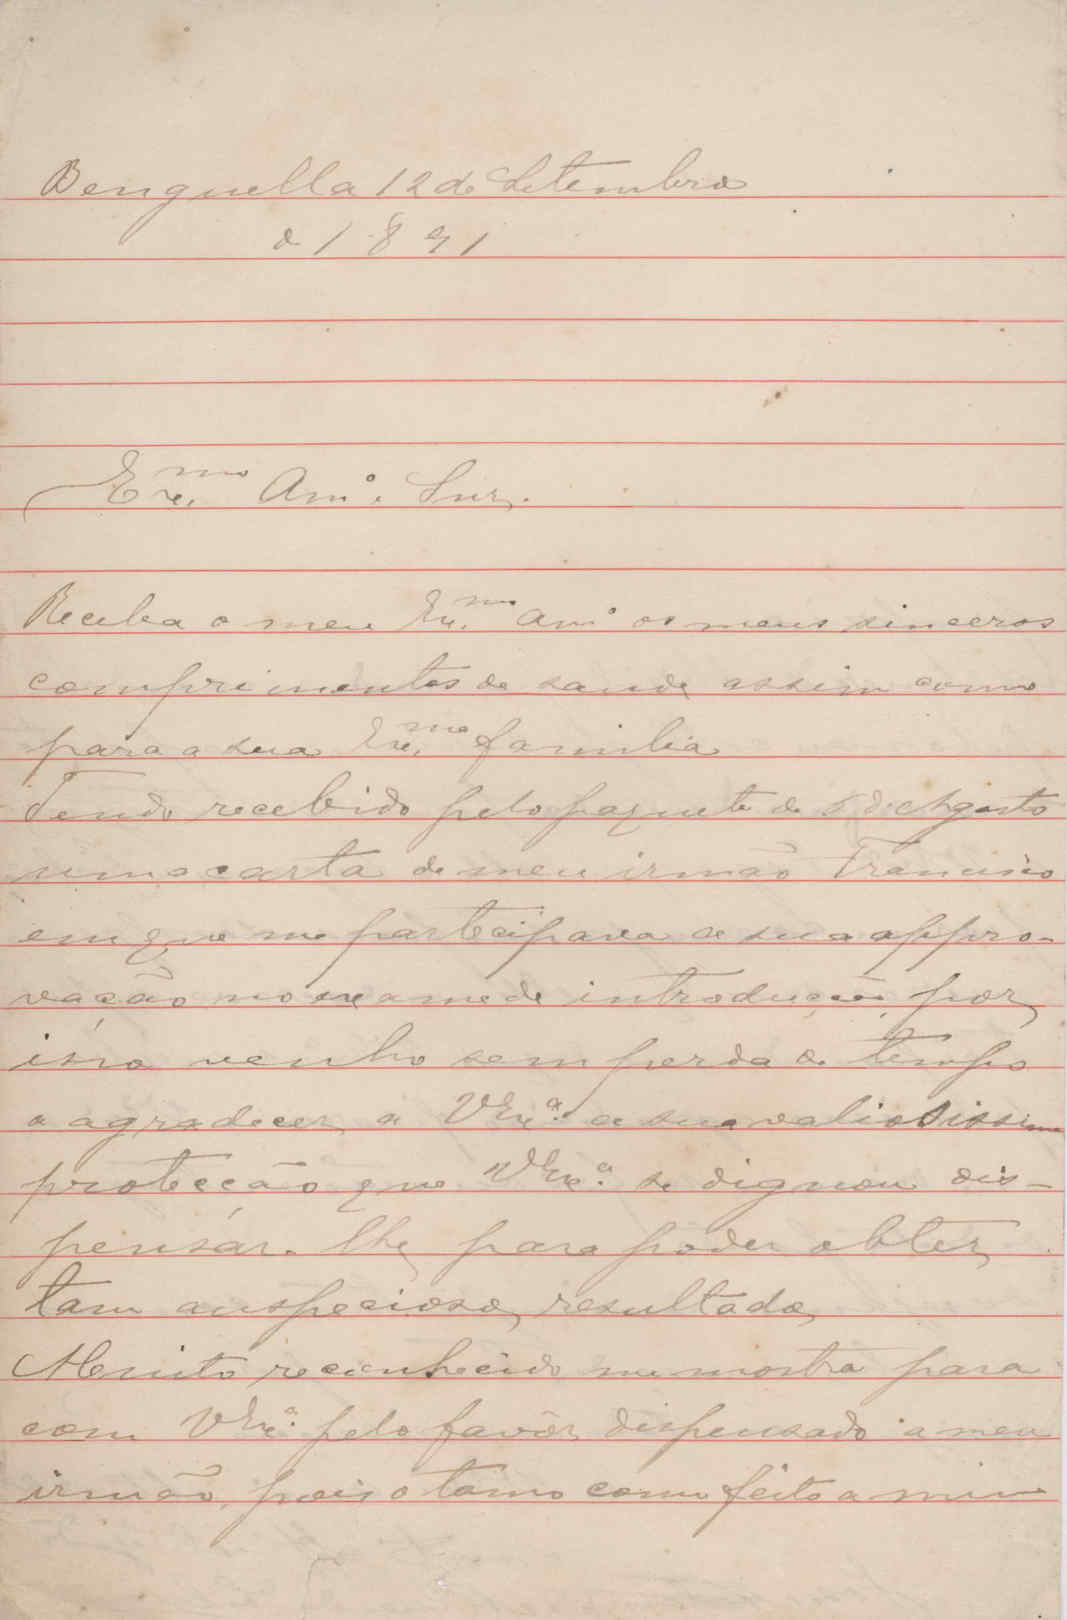 Benguella 12 de Setembro
de 1891
Exmo Amo e Snr.
Receba o meu Exmo Amo os meus sinceros
comprimentos de saude assim como
para a sua Exma familia
Tendo recebido pelo paquete de 6 de Agosto
uma carta de meu irmão Francisco
em que me partecipava a sua appro-
vação no exame de introdução, por
isso venho sem perda de tempo
a agradecer a VExa. a sua valiosissima
proteccão que VExa. se dignou dis-
pensár-lhe para poder obter
tam auspecioso resultado,
Muito reconhecido me mostro para
com VExa. pelo favôr dispensado a meu
irmão, pois o tomo como feito a mim